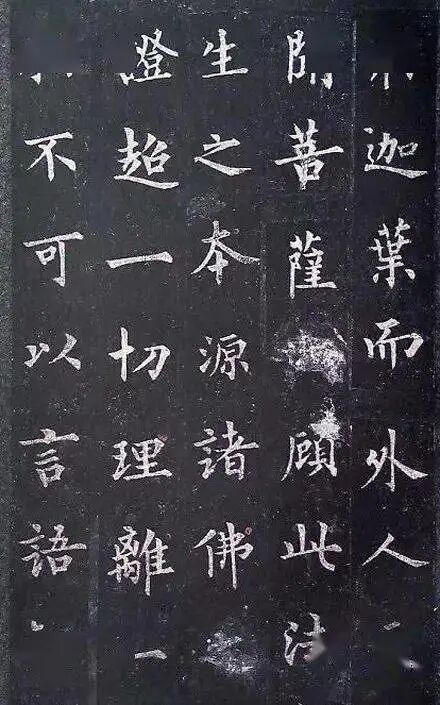 迦葉而外人
菩薩顧此法
生之本源諸佛之
證超一切理離一
不可以言語